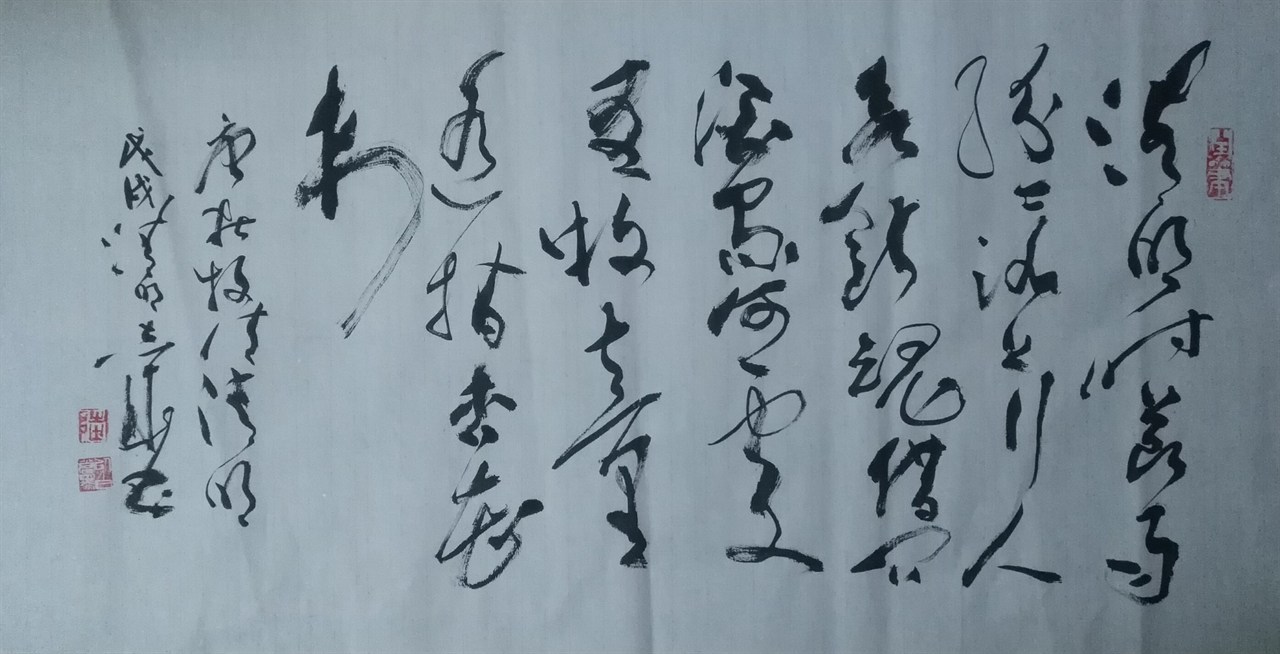 清明时节雨
纷〻路上行人
欲断魂借问
酒家何處
有牧童
遥指杏花
村
唐杜牧诗清明
戊戌清明 书